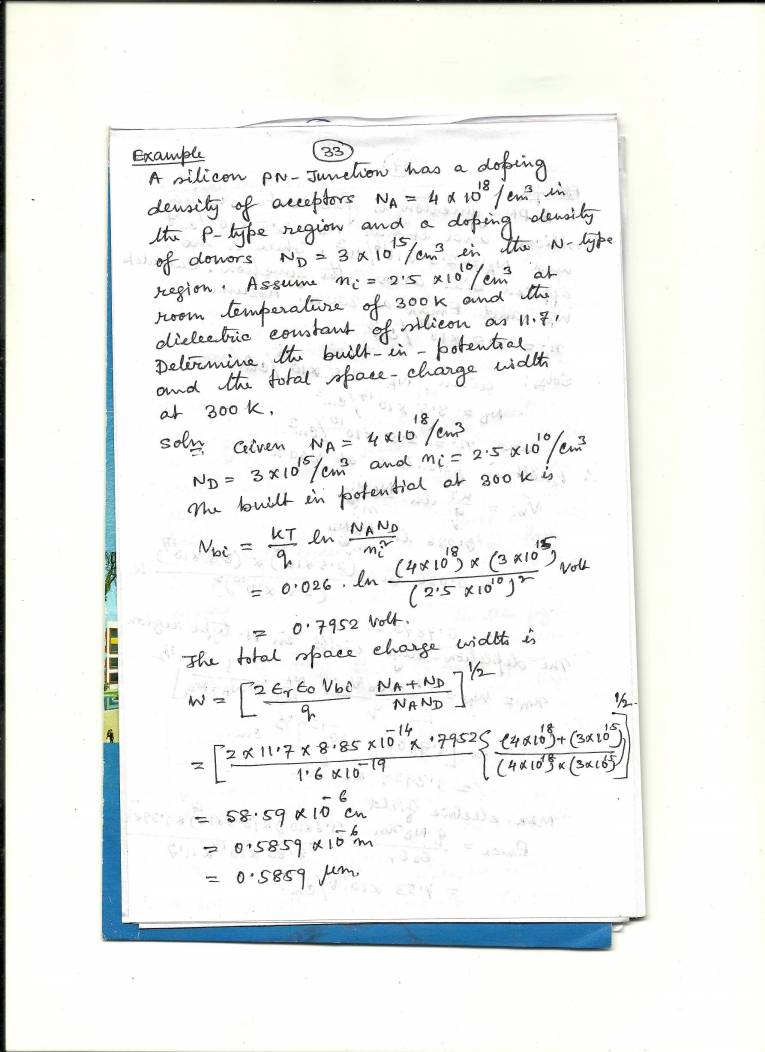 Example 33
A silicon PN-Junction has a doping
density of acceptors NA = 4 × 10^18 /cm^3 in
the P-type region and a doping density
of donors ND = 3 × 10^15/cm^3 in the N-type
region. Assume ni = 2.5 × 10^10/cm^3 at
room temperature of 300K and the
dielectric constant of silicon as 11.7.
Determine the built-in-potential
and the total space-charge width
at 300 K.
Soln Given NA = 4×10^18/cm^3
ND = 3×10^15/cm^3 and ni = 2.5 ×10^10/cm^3
The built in potential at 300 K is
Vbi = KT/q ln NAND/ni^2
= 0.026 . ln (4×10^18) × (3 ×10^15)/(2.5 ×10^10)^2 Volt
= 0.7952 Volt.
The total space charge width is
W = [2 Єr Єo Vbi/q NA + ND/NAND]^1/2
= [2 × 11.7 × 8.85 ×10^-14 × .7952/1.6 ×10^-19 { (4×10^18) + (3×10^15)/(4×10^18) × (3×10^15) }]^1/2
= 58.59 ×10^-6 cm
= 0.5859 ×10^-6 m
= 0.5859 μm.